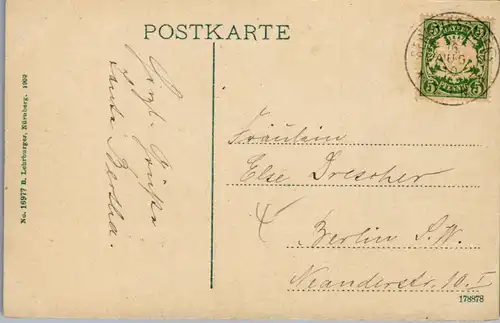 POSTKARTE
No. 16977 R. Lehrburger, Nürnberg. 1909
Herzl. Grüße
Tante Bertha.
5 5
PFENNIG
5 5
Fräulein
Else Drescher
Berlin S.W.
Neanderstr. 10. I
178878